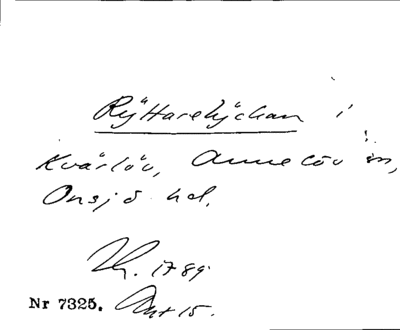 Ryttarelyckan i
Kvärlöv, Annelöv sn,
Onsjö hd.
Th. 1789
Nr 7325. Akt 15.